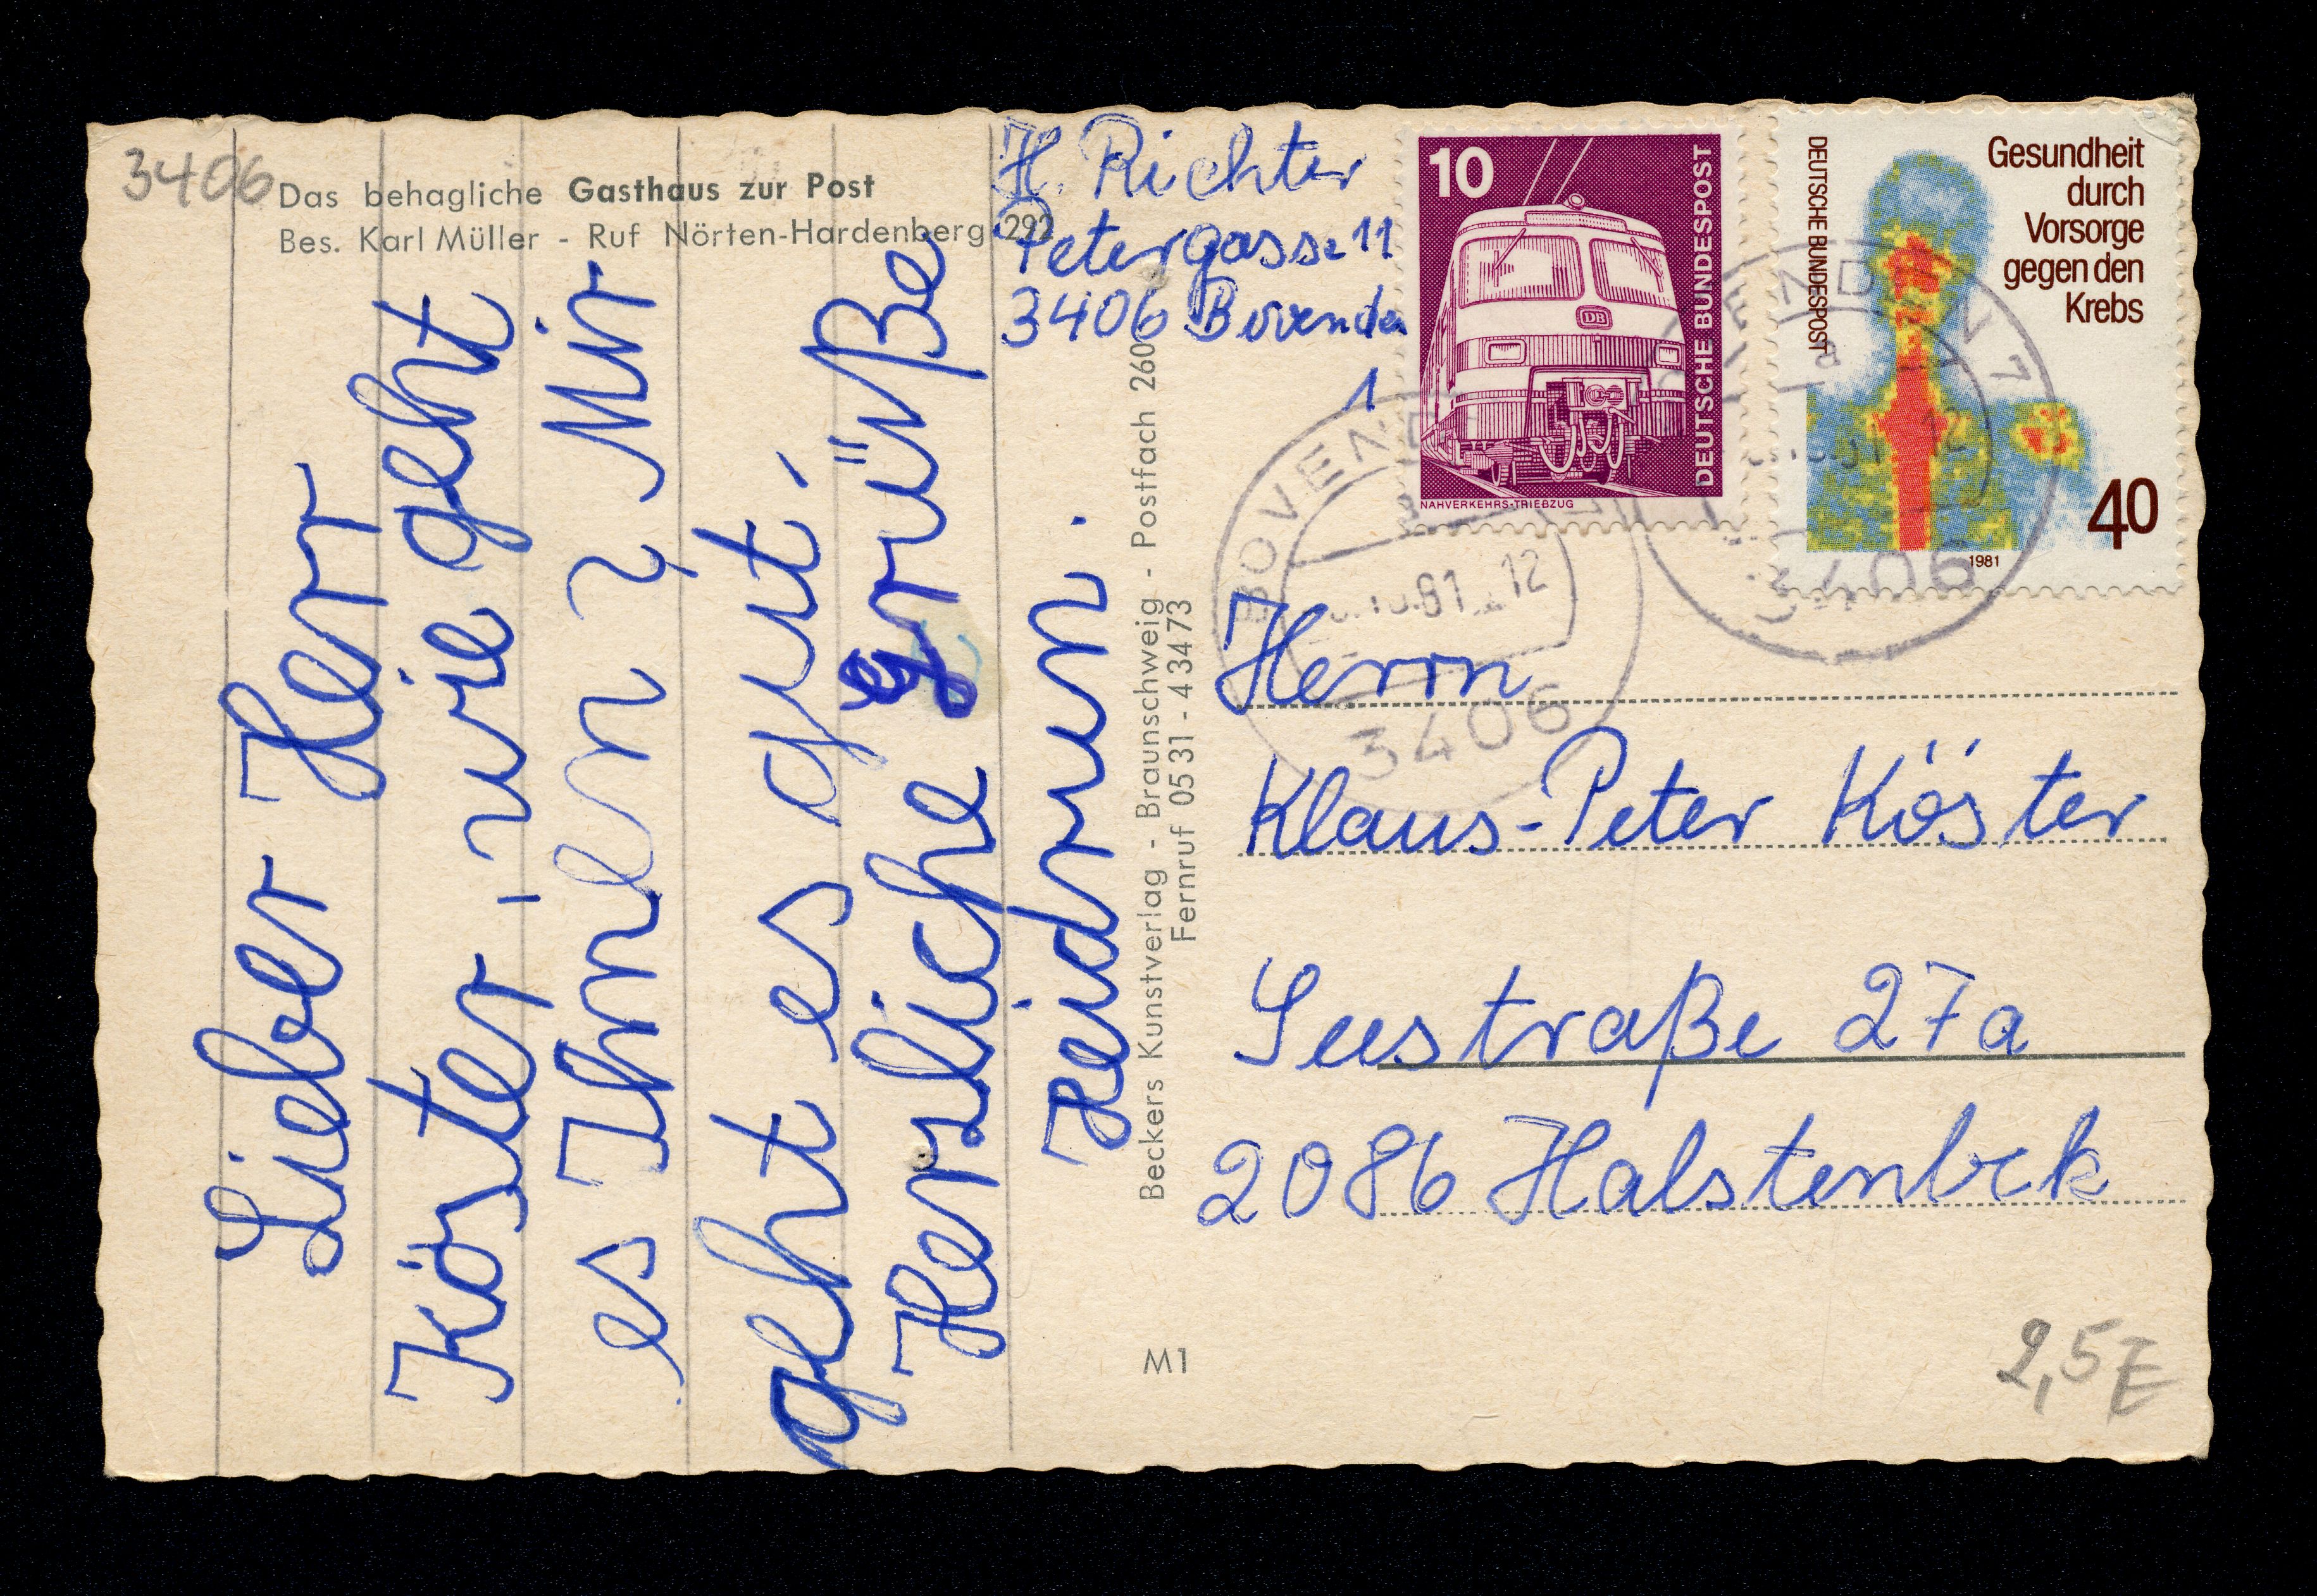 3406
Das behagliche Gasthaus zur Post
Bes. Karl Müller - Ruf Nörten-Hardenberg 292
Lieber Herr
Köster, wie geht
es Ihnen? Mir
geht es gut,
Herzliche grüße
Heidrun.
Beckers Kunstverlag - Braunschweig - Postfach 260
Fernruf 05 31 - 4 34 73
M1
H. Richter
Petergasse 11
3406 Bovenden
1
10
DEUTSCHE BUNDESPOST
DB
NAHVERKEHRS-TRIEBZUG
DEUTSCHE BUNDESPOST
Gesundheit
durch
Vorsorge
gegen den
Krebs
40
1981
BOVENDEN
81 12
3406
BOVENDEN 7
a
81 12
3406
Herrn
Klaus-Peter Köster
Seestraße 27a
2086 Halstenbek
2,5E